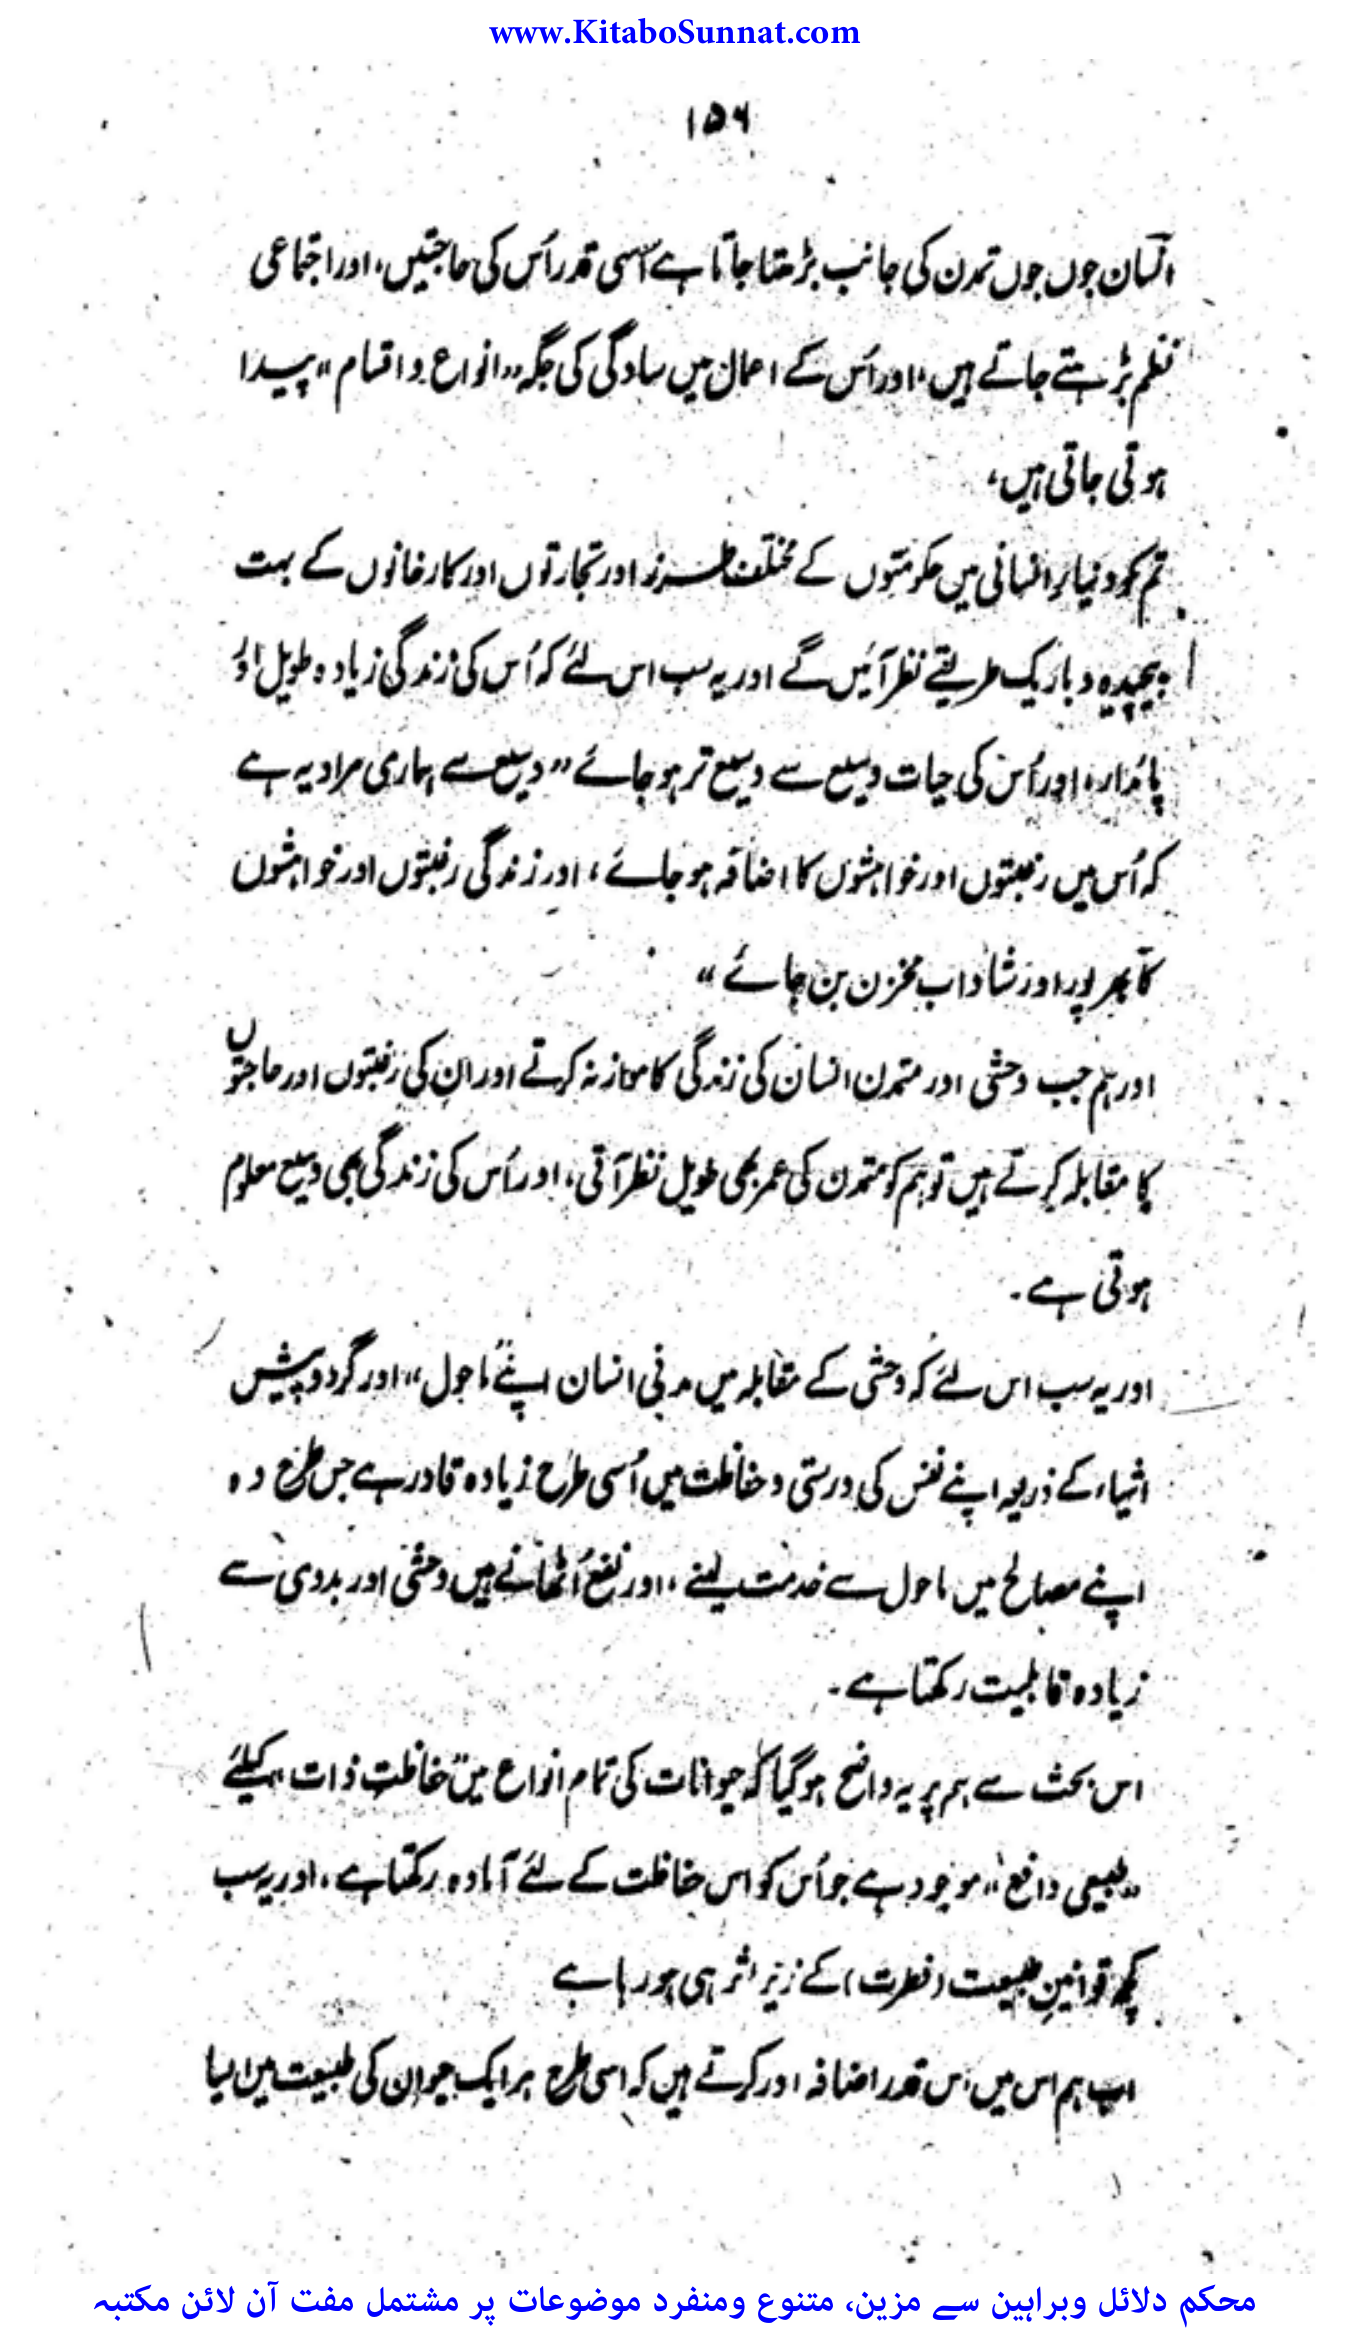 www.KitaboSunnat.com
۱۵۶
انسان جوں جوں تمدن کی جانب بڑھتا جاتا ہے اُسی قدر اُس کی حاجتیں، اور اجتماعی
نظم بڑہتے جاتے ہیں، اور اُس کے اعمال میں سادگی کی جگہ "انواع و اقسام" پیدا
ہوتی جاتی ہیں،
تم کو دنیاءِ انسانی میں حکومتوں کے مختلف طرز اور تجارتوں اور کارخانوں کے بہت
پیچیدہ و باریک طریقے نظر آئیں گے اور یہ سب اس لئے کہ اُس کی زندگی زیادہ طویل اور
پائدار، اور اُس کی حیات وسیع سے وسیع تر ہو جائے "وسیع سے ہماری مراد یہ ہے
کہ اُس میں رغبتوں اور خواہشوں کا اضافہ ہو جائے، اور زندگی رغبتوں اور خواہشوں
کا بھرپور اور شاداب مخزن بن جائے"
اور ہم جب وحشی اور متمدن انسان کی زندگی کا موازنہ کرتے اور ان کی رغبتوں اور حاجتوں
کا مقابلہ کرتے ہیں تو ہم کو متمدن کی عمر بھی طویل نظر آتی، اور اُس کی زندگی بھی وسیع معلوم
ہوتی ہے۔
اور یہ سب اس لئے کہ وحشی کے مقابلہ میں مدنی انسان اپنے "ماحول" اور گرد و پیش
اشیاء کے ذریعہ اپنے نفس کی درستی و حفاظت میں اُسی طرح زیادہ قادر ہے جس طرح وہ
اپنے مصالح میں ماحول سے خدمت لینے، اور نفع اُٹھانے میں وحشی اور بدوی سے
زیادہ قابلیت رکھتا ہے۔
اس بحث سے ہم پر یہ واضح ہو گیا کہ حیوانات کی تمام انواع میں "حفاظتِ ذات" کیلئے
"طبیعی دافع" موجود ہے جو اُس کو اس حفاظت کے لئے آمادہ رکھتا ہے، اور یہ سب
کچھ قوانینِ طبیعت (فطرت) کے زیرِ اثر ہی ہو رہا ہے
اب ہم اس میں اس قدر اضافہ اور کرتے ہیں کہ اسی طرح ہر ایک حیوان کی طبیعت میں ایسا
محکم دلائل وبراہین سے مزین، متنوع ومنفرد موضوعات پر مشتمل مفت آن لائن مکتبہ